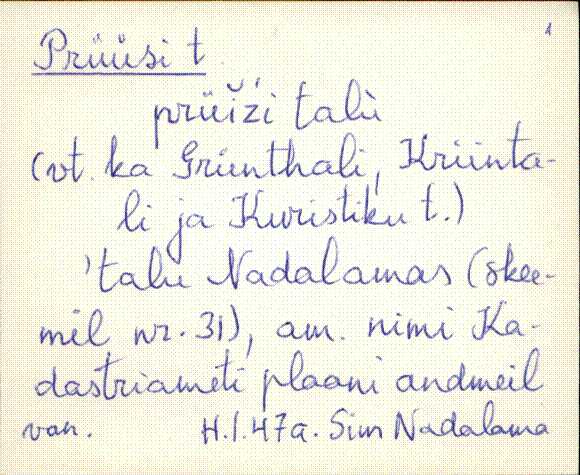 1
Prüüsi t
prüiži talu
(vt. ka Grünthali, Krüinta-
li ja Kuristiku t.)
'talu Nadalamas (skee-
mil nr. 31), am. nimi Ka-
dastriameti plaani andmeil
van. H. I. 47a. Sim Nadalama